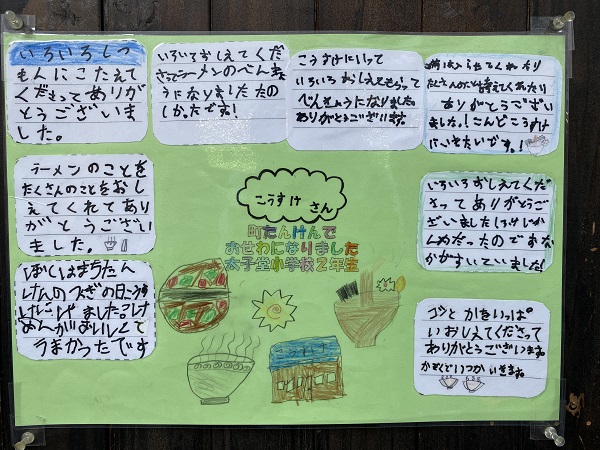 いろいろしつ
もんにこたえて
くださってありが
とうございま
した。
いろいろおしえてくだ
さってラーメンのべんき
うになりましたたの
しかったです!
こうすけにいって
いろいろおしえてもらって
べんきょうになりました。
ありがとうございます。
たくさんのことを
ありがとうござい
ました!こんどこうすけ
にいきたいです。!
ラーメンのことを
たくさんのことをおし
えてくれてあり
がとうござい
ました。
こうすけ さん
町たんけんで
おせわになりました
太子堂小学校2年生
いろいろおしえてくだ
さってありがとうご
ざいました
だったのですが
ぼくはまちたん
けんのつぎの日こうす
けに
めんがおいしくて
うまかったです
こうすけ
いおしえてくださって
ありがとうございます。
かぞくでいつかいきます。